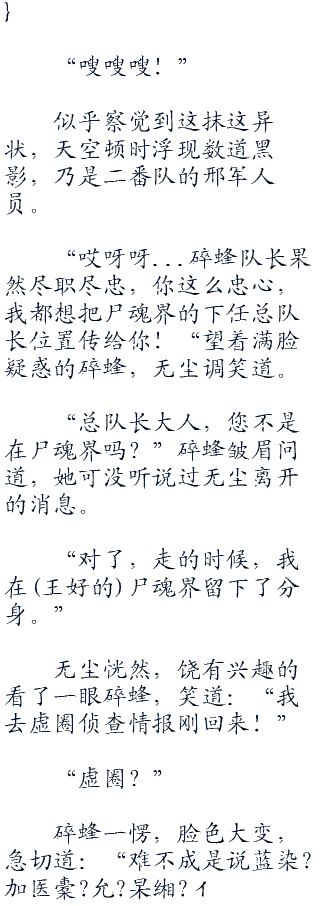 }
“嗖嗖嗖！”
似乎察觉到这抹这异
状，天空顿时浮现数道黑
影，乃是二番队的邢军人
员。
“哎呀呀...碎蜂队长果
然尽职尽忠，你这么忠心，
我都想把尸魂界的下任总队
长位置传给你！“望着满脸
疑惑的碎蜂，无尘调笑道。
“总队长大人，您不是
在尸魂界吗？”碎蜂皱眉问
道，她可没听说过无尘离开
的消息。
“对了，走的时候，我
在(王好的)尸魂界留下了分
身。”
无尘恍然，饶有兴趣的
看了一眼碎蜂，笑道：“我
去虚圈侦查情报刚回来！”
“虚圈？”
碎蜂一愣，脸色大变，
急切道：“难不成是说蓝染?
加医橐?允?杲缃?亻